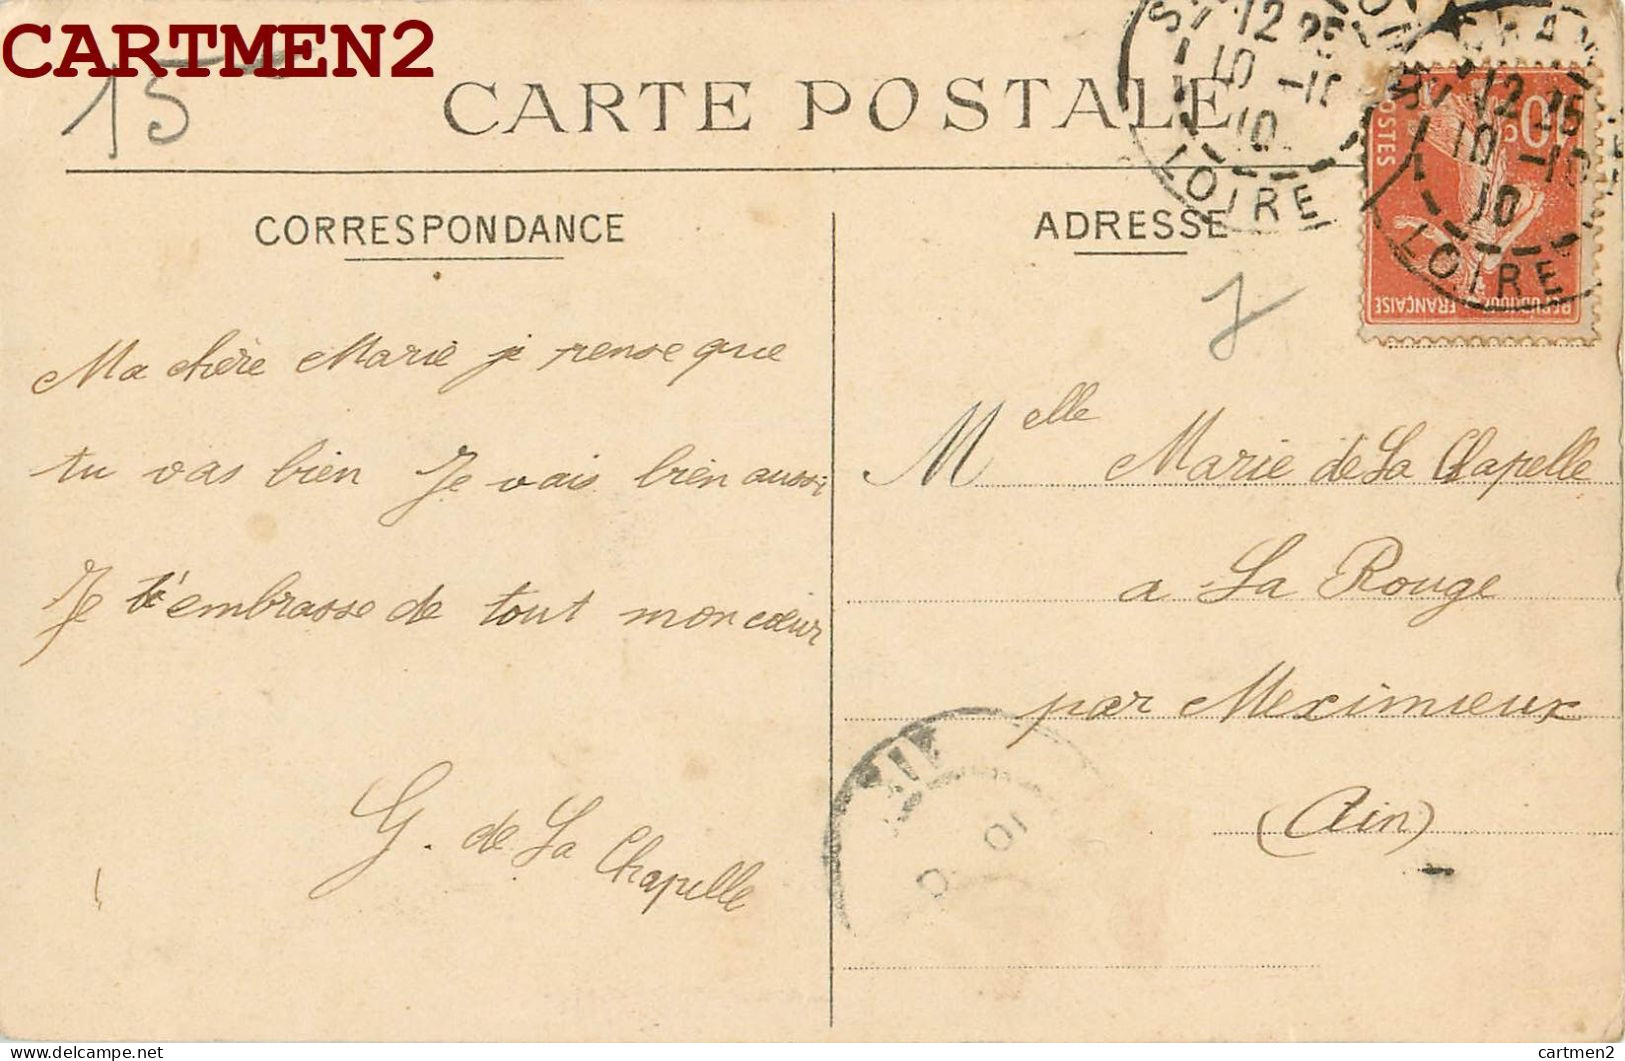 CARTMEN2
15
CARTE POSTALE
12 25
10 -10
10
LOIRE
12 25
10 -10
10
LOIRE
POSTES
10 c
FRANÇAISE
CORRESPONDANCE
ADRESSE
Ma chère Marie je pense que
tu vas bien Je vais bien aussi
Je t'embrasse de tout mon cœur
G. de La Chapelle
Melle Marie de La Chapelle
a La Rouge
par Meximieux
(Ain)
cartmen2.delcampe.net
cartmen2